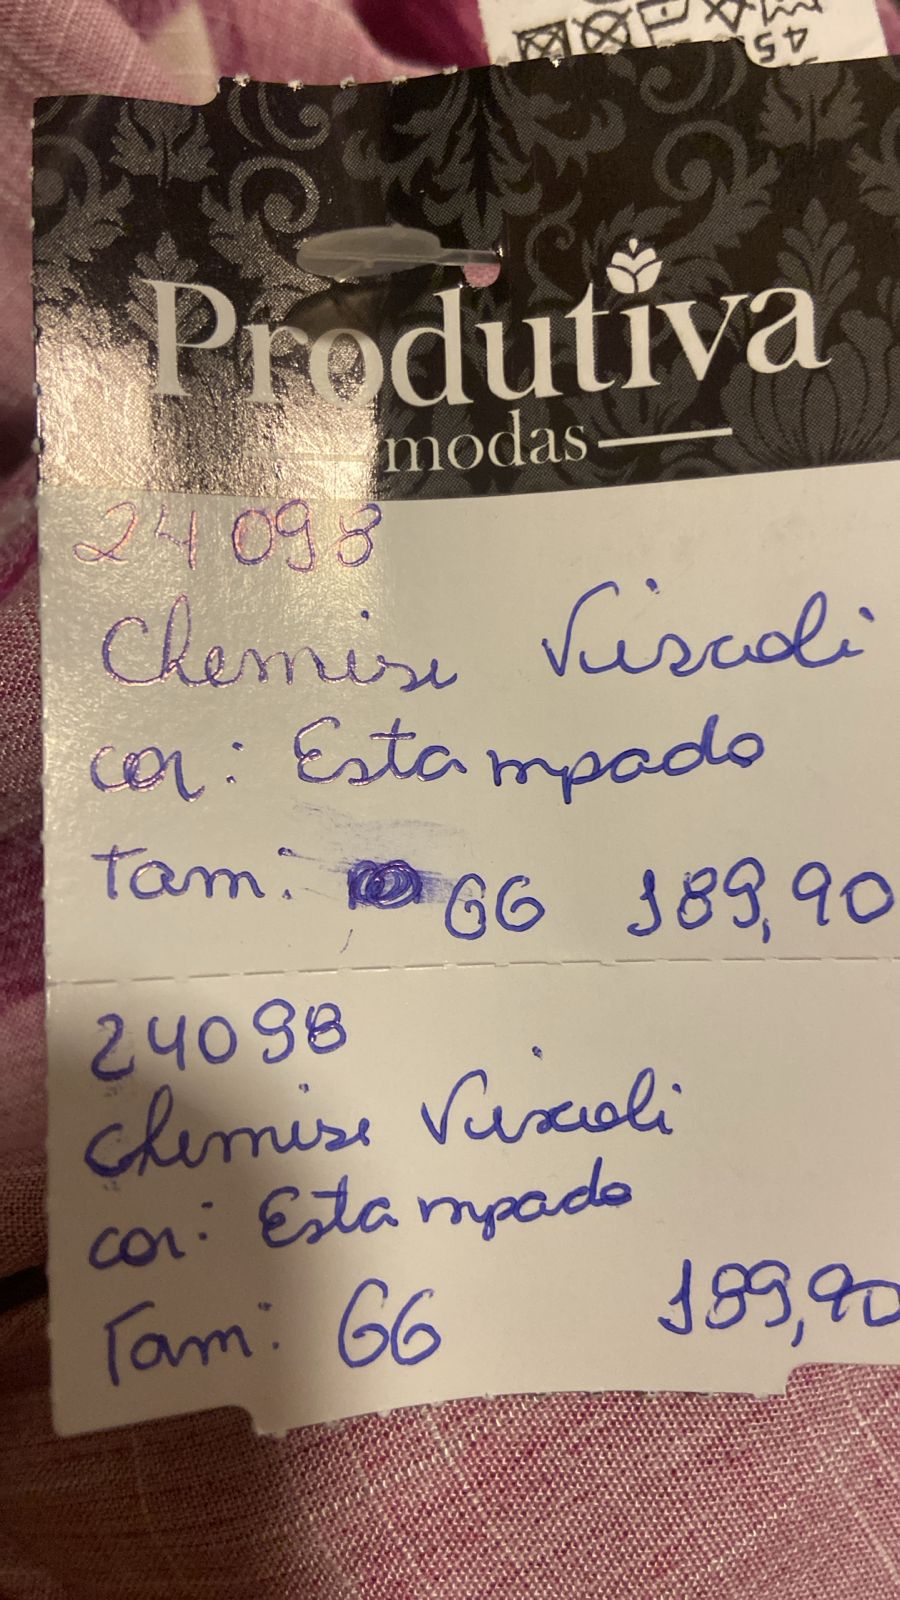 45
Produtiva
modas
24098
Chemise Viscoli
cor: Estampado
Tam: GG 189,90
24098
Chemise Viscoli
cor: Estampado
Tam: GG 189,90